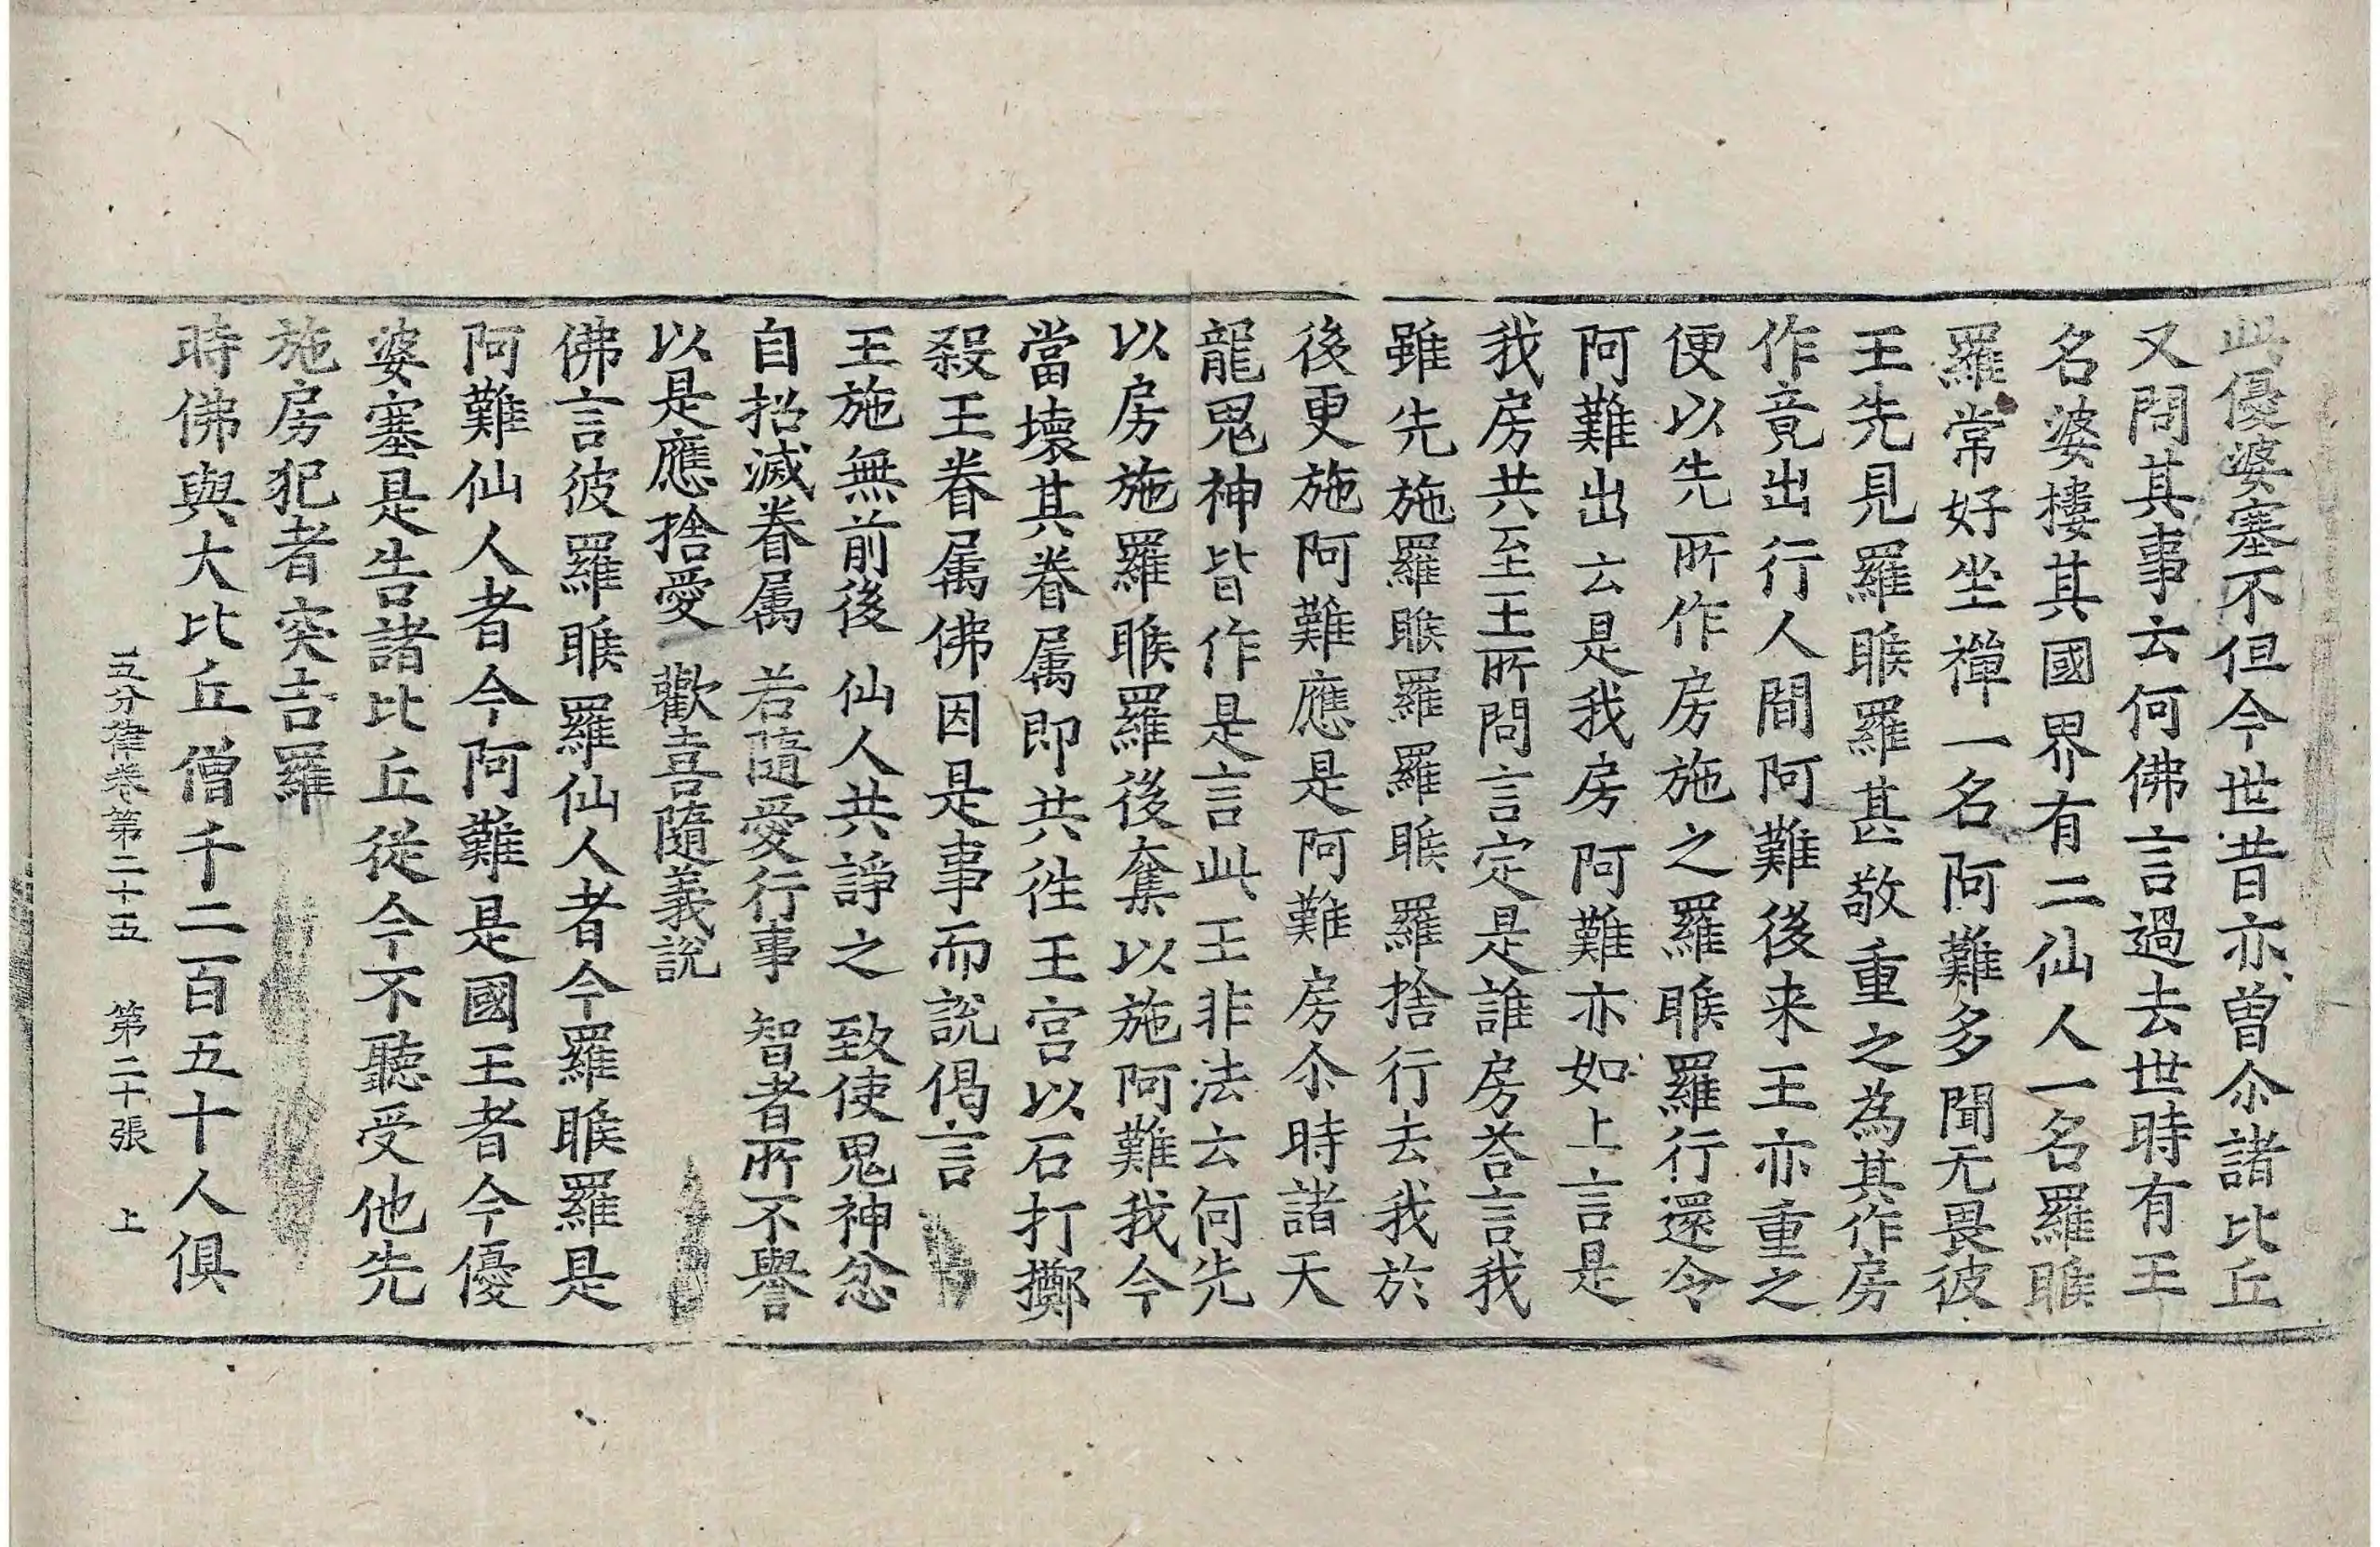 此優婆塞不但今世昔亦曾尒諸比丘
又問其事云何佛言過去世時有王
名婆樓其國界有二仙人一名羅睺
羅常好坐禪一名阿難多聞无畏彼
王先見羅睺羅甚敬重之為其作房
作竟出行人間阿難後来王亦重之
便以先所作房施之羅睺羅行還令
阿難出云是我房阿難亦如上言是
我房共至王所問言定是誰房荅言我
雖先施羅睺羅羅睺羅捨行去我於
後更施阿難應是阿難房尒時諸天
龍鬼神皆作是言此王非法云何先
以房施羅睺羅後奪以施阿難我今
當壞其眷属即共徃王宫以石打擲
殺王眷属佛因是事而説偈言
王施無前後 仙人共諍之 致使鬼神忿
自招滅眷属 若隨愛行事 智者所不譽
以是應捨愛 歡喜隨義説
佛言彼羅睺羅仙人者今羅睺羅是
阿難仙人者今阿難是國王者今優
婆塞是告諸比丘從今不聽受他先
施房犯者突吉羅
時佛與大比丘僧千二百五十人俱
五分律卷第二十五 第二十張 上